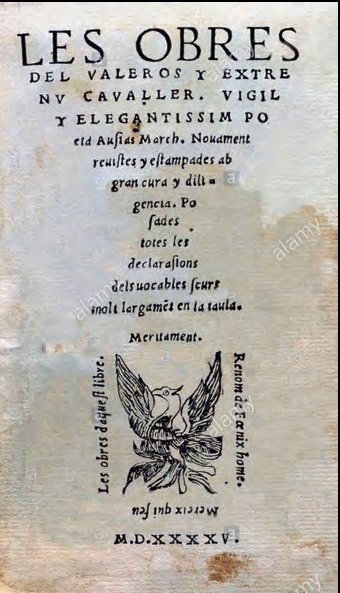 LES OBRES
DEL VALEROS Y EXTRE
NV CAVALLER. VIGIL
Y ELEGANTISSIM PO
eta Auſias March. Nouament
reuiſtes y eſtampades ab
gran cura y dili-
gencia. Po
ſades
totes les
declaraſions
dels uocables ſcurs
molt largamẽt en la taula.
Meritament.
Les obres daqueſt libre.
Renom de Fœnix home.
Mereix qui ſeu
M.D.XXXXV.
alamy
alamy
alamy
a
a
a